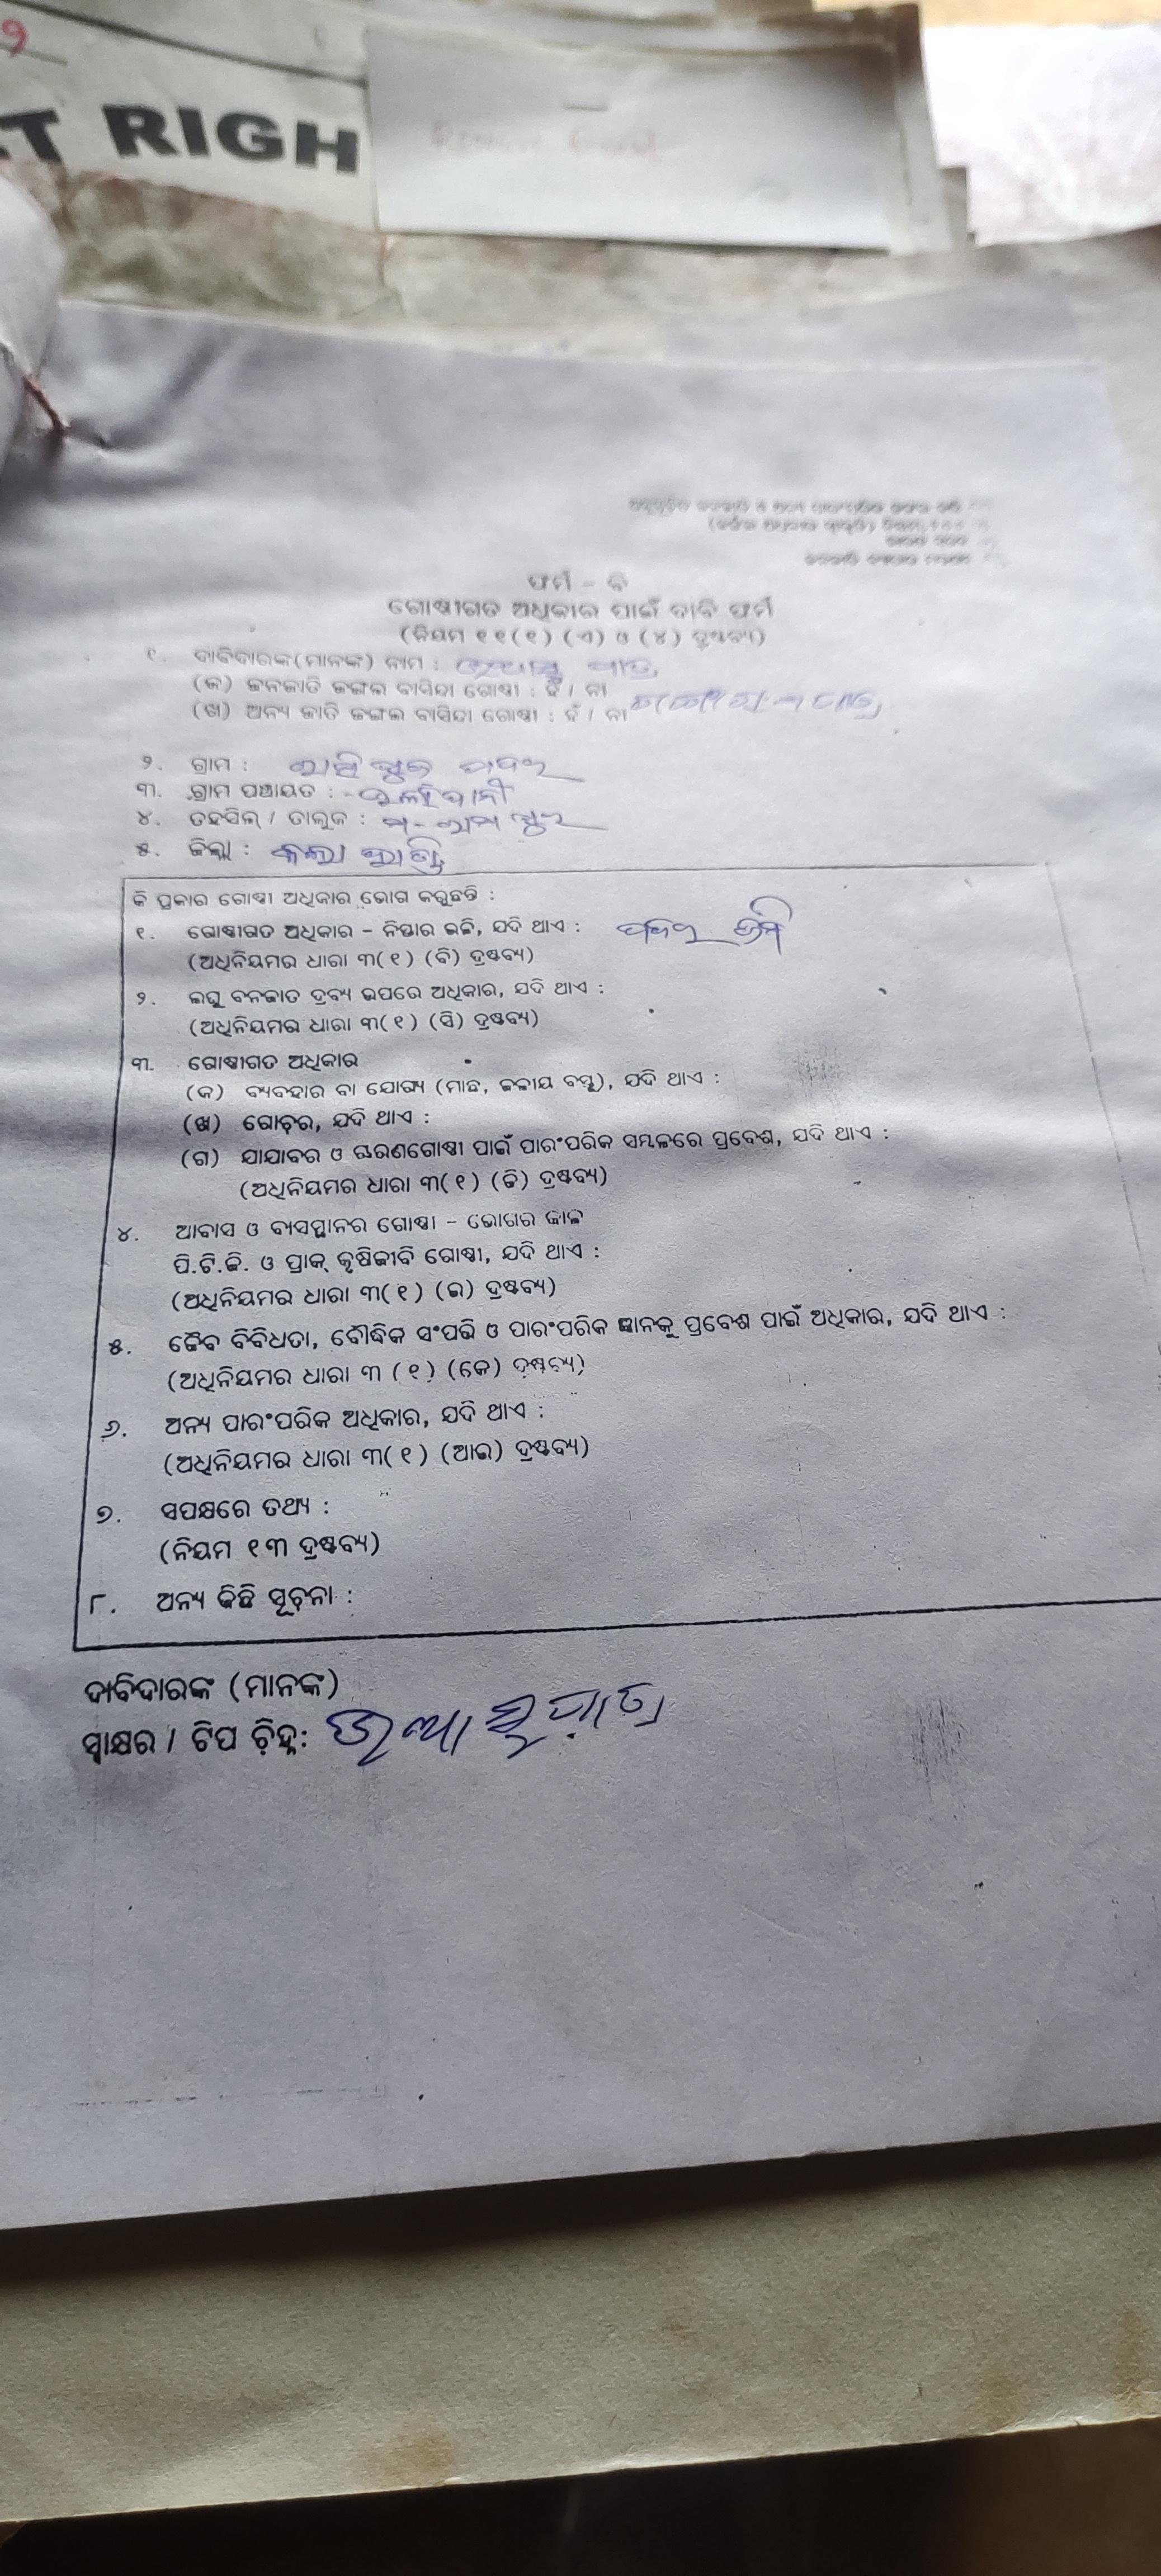 ୨
T RIGH
ଫର୍ମ - ବି
ଗୋଷ୍ଠୀଗତ ଅଧିକାର ପାଇଁ ଦାବି ଫର୍ମ
(ନିୟମ ୧୧(୧) (ଏ) ଓ (୪) ଦ୍ରଷ୍ଟବ୍ୟ)
୧. ଦାବିଦାରଙ୍କ(ମାନଙ୍କ) ନାମ :
(କ) ଜନଜାତି ଜଙ୍ଗଲ ବାସିନ୍ଦା ଗୋଷ୍ଠୀ : ହଁ / ନା
(ଖ) ଅନ୍ୟ ଜାତି ଜଙ୍ଗଲ ବାସିନ୍ଦା ଗୋଷ୍ଠୀ : ହଁ / ନା
୨. ଗ୍ରାମ :
୩. ଗ୍ରାମ ପଞ୍ଚାୟତ :
୪. ତହସିଲ୍ / ତାଲୁକ : ମ-ରାମପୁର
୫. ଜିଲ୍ଲା : କଳାହାଣ୍ଡି
କି ପ୍ରକାର ଗୋଷ୍ଠୀ ଅଧିକାର ଭୋଗ କରୁଛନ୍ତି :
୧. ଗୋଷ୍ଠୀଗତ ଅଧିକାର - ନିସ୍ତାର ଭଳି, ଯଦି ଥାଏ :
(ଅଧିନିୟମର ଧାରା ୩(୧) (ବି) ଦ୍ରଷ୍ଟବ୍ୟ)
୨. ଲଘୁ ବନଜାତ ଦ୍ରବ୍ୟ ଉପରେ ଅଧିକାର, ଯଦି ଥାଏ :
(ଅଧିନିୟମର ଧାରା ୩(୧) (ସି) ଦ୍ରଷ୍ଟବ୍ୟ)
୩. ଗୋଷ୍ଠୀଗତ ଅଧିକାର
(କ) ବ୍ୟବହାର ବା ଯୋଗ୍ୟ (ମାଛ, ଜଳୀୟ ବସ୍ତୁ), ଯଦି ଥାଏ :
(ଖ) ଗୋଚ଼ର, ଯଦି ଥାଏ :
(ଗ) ଯାଯାବର ଓ ଚାରଣଗୋଷ୍ଠୀ ପାଇଁ ପାରଂପରିକ ସମ୍ବଳରେ ପ୍ରବେଶ, ଯଦି ଥାଏ :
(ଅଧିନିୟମର ଧାରା ୩(୧) (ଡି) ଦ୍ରଷ୍ଟବ୍ୟ)
୪. ଆବାସ ଓ ବ୍ୟସସ୍ଥାନର ଗୋଷ୍ଠୀ - ଭୋଗର କାଳ
ପି.ଟି.ଜି. ଓ ପ୍ରାକ୍ କୃଷିଜୀବି ଗୋଷ୍ଠୀ, ଯଦି ଥାଏ :
(ଅଧିନିୟମର ଧାରା ୩(୧) (ଇ) ଦ୍ରଷ୍ଟବ୍ୟ)
୫. ଜୈବ ବିବିଧତା, ବୌଦ୍ଧିକ ସଂପତ୍ତି ଓ ପାରଂପରିକ ଜ୍ଞାନକୁ ପ୍ରବେଶ ପାଇଁ ଅଧିକାର, ଯଦି ଥାଏ :
(ଅଧିନିୟମର ଧାରା ୩ (୧) (କେ) ଦ୍ରଷ୍ଟବ୍ୟ)
୬. ଅନ୍ୟ ପାରଂପରିକ ଅଧିକାର, ଯଦି ଥାଏ :
(ଅଧିନିୟମର ଧାରା ୩(୧) (ଆଇ) ଦ୍ରଷ୍ଟବ୍ୟ)
୭. ସପକ୍ଷରେ ତଥ୍ୟ :
(ନିୟମ ୧୩ ଦ୍ରଷ୍ଟବ୍ୟ)
୮. ଅନ୍ୟ କିଛି ସୂଚ଼ନା :
ଦାବିଦାରଙ୍କ (ମାନଙ୍କ)
ସ୍ଵାକ୍ଷର / ଟିପ ଚ଼ିହ୍ନ :